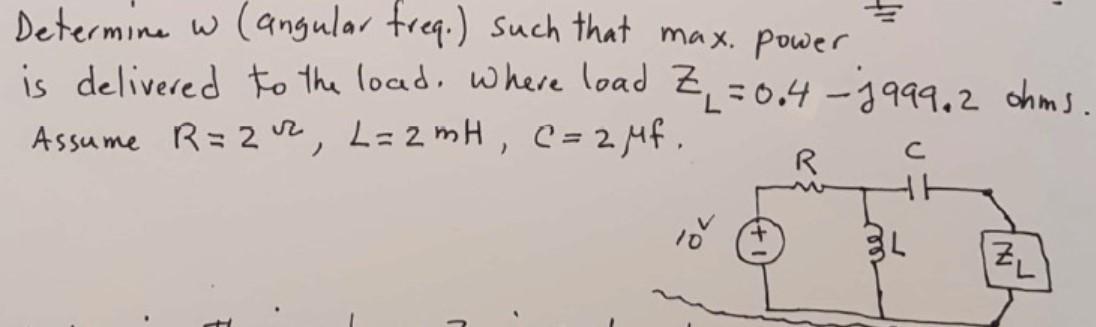 Determine w (angular freq.) such that max. power
is delivered to the load. where load Z_L = 0.4 - j999.2 ohms.
Assume R = 2 Ω, L = 2 mH, C = 2 μf.
R
C
10 V
+
-
L
Z_L